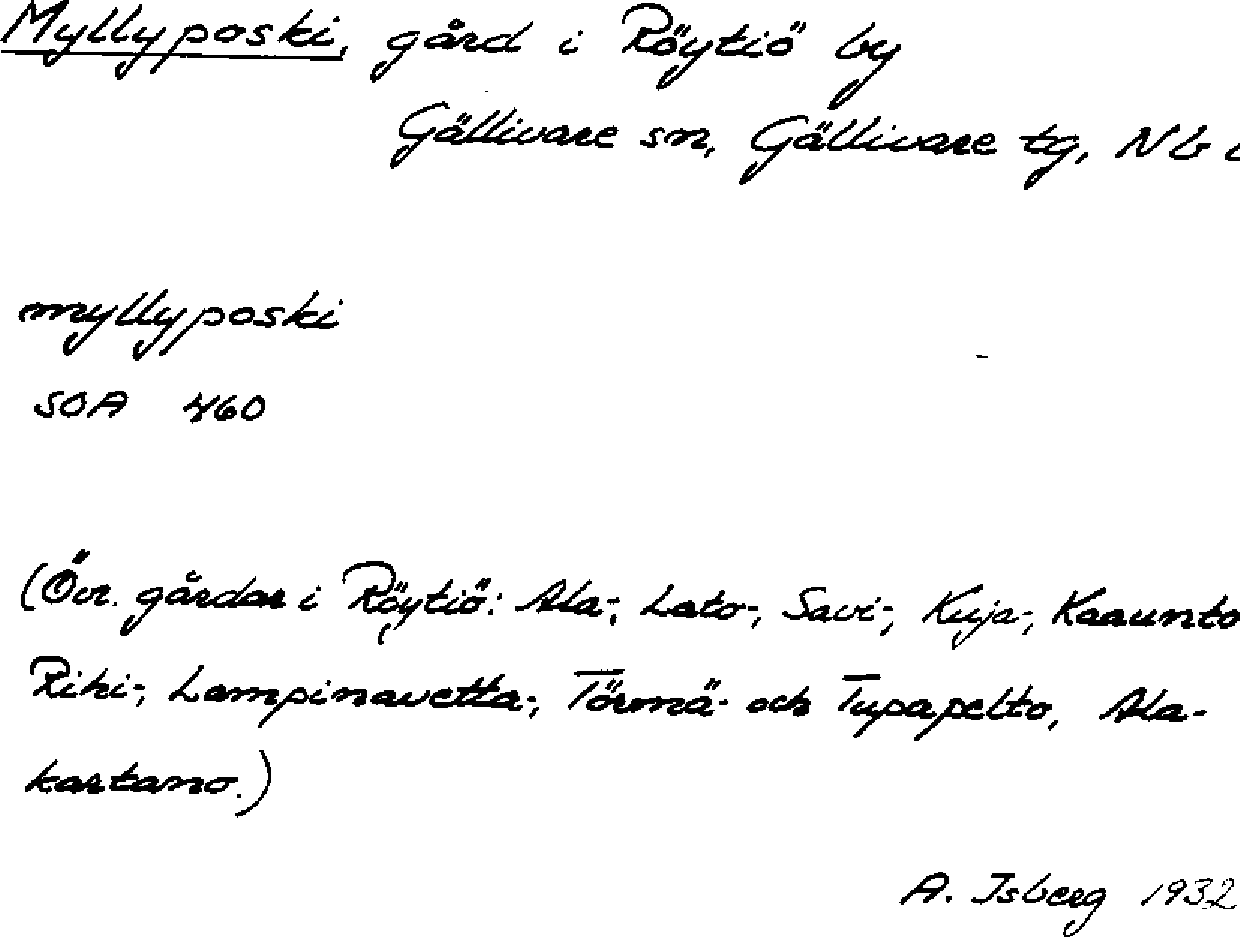 Myllyposki, gård i Röytiö by
Gällivare sn, Gällivare tg, Nb
myllyposki
SOA 460
(Övr. gårdar i Röytiö: Ala-, Lato-, Savi-, Kuja-, Kaaunto
Riki-, Lampinavetta-, Törmä- och Tupapelto, Ala-
kartano.)
A. Isberg 1932